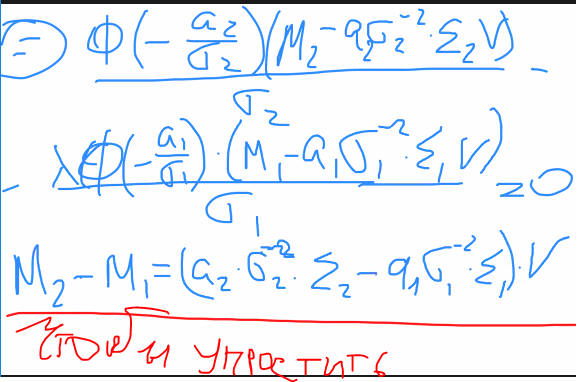 = Φ(-a₂/σ₂)(M₂-a₂σ₂⁻²·Σ₂V)/σ₂ -
- λΦ(-a₁/σ₁)·(M₁-a₁σ₁⁻²·Σ₁V)/σ₁ =0
M₂-M₁=(a₂·σ₂⁻²·Σ₂-a₁σ₁⁻²·Σ₁)·V
чтобы упростить